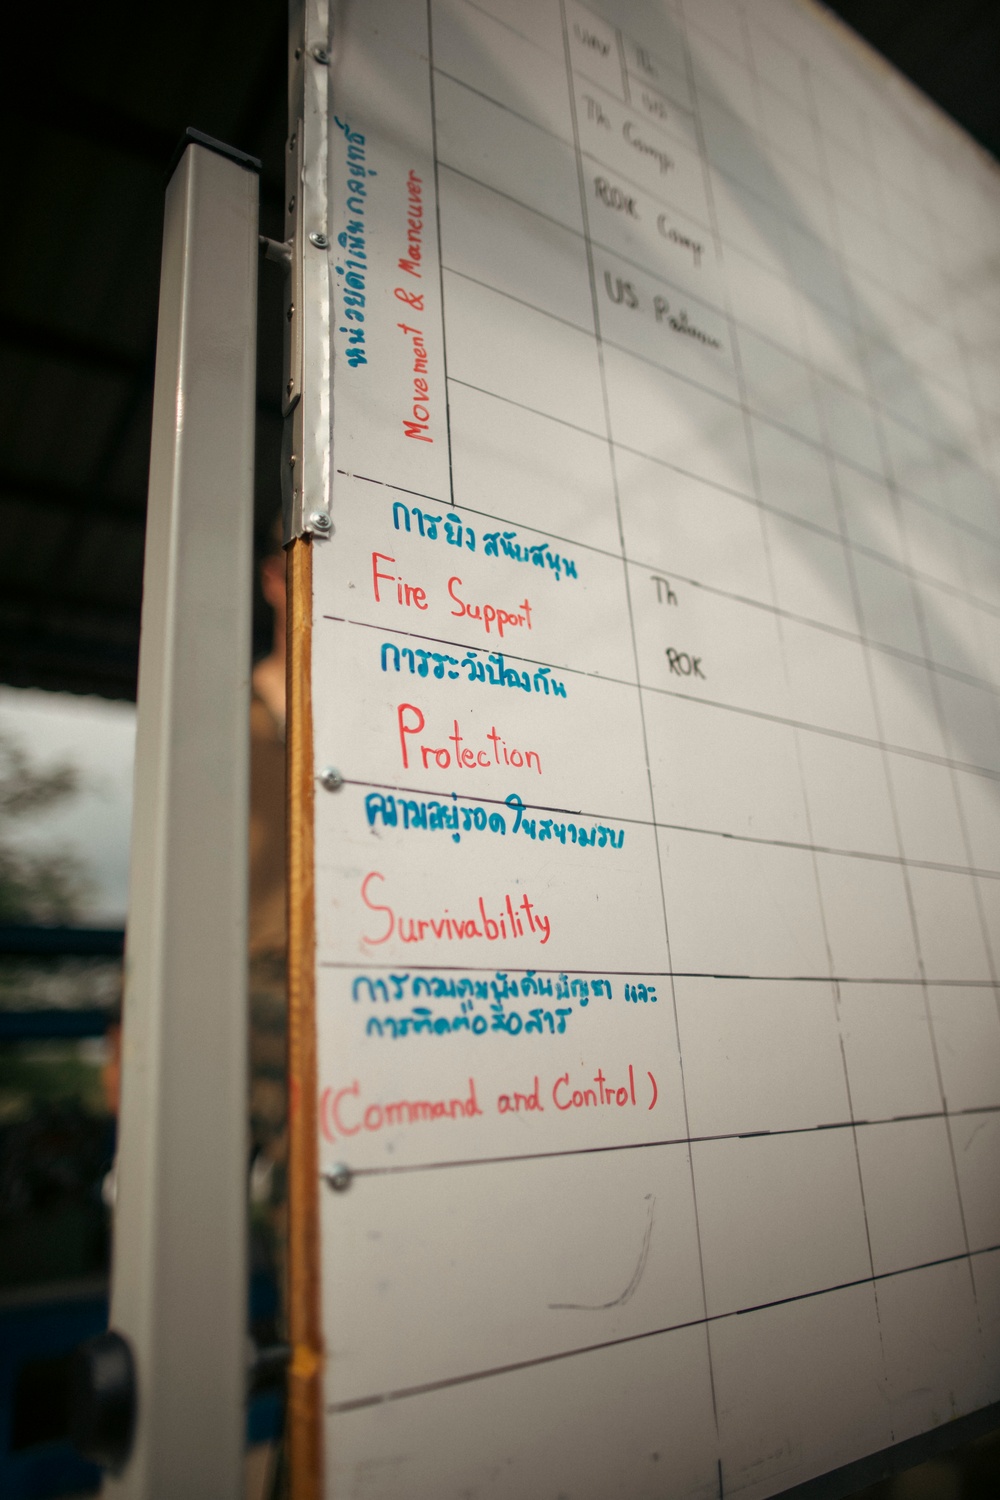 Th
US
Th Comp
ROK Comp
US
หน่วยดำเนินกลยุทธ์
Movement & Maneuver
การยิงสนับสนุน
Fire Support
Th
ROK
การระวังป้องกัน
Protection
ความอยู่รอดในสนามรบ
Survivability
การควบคุมบังคับบัญชา และ
การติดต่อสื่อสาร
(Command and Control)